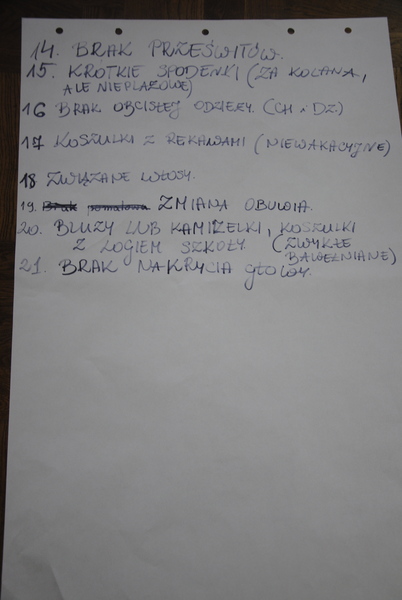 14. BRAK PRZEŚWITÓW.
15. KRÓTKIE SPODENKI (ZA KOLANA,
ALE NIEPLAŻOWE)
16 BRAK OBCISŁEJ ODZIEŻY. (CH i DZ)
17 KOSZULKI Z RĘKAWAMI (NIEWAKACYJNE)
18 ZWIĄZANE WŁOSY.
19. Brak pomalowa ZMIANA OBUWIA.
20. BLUZY LUB KAMIZELKI, KOSZULKI
Z LOGIEM SZKOŁY (ZWYKŁE
BAWEŁNIANE)
21. BRAK NAKRYCIA GŁOWY.